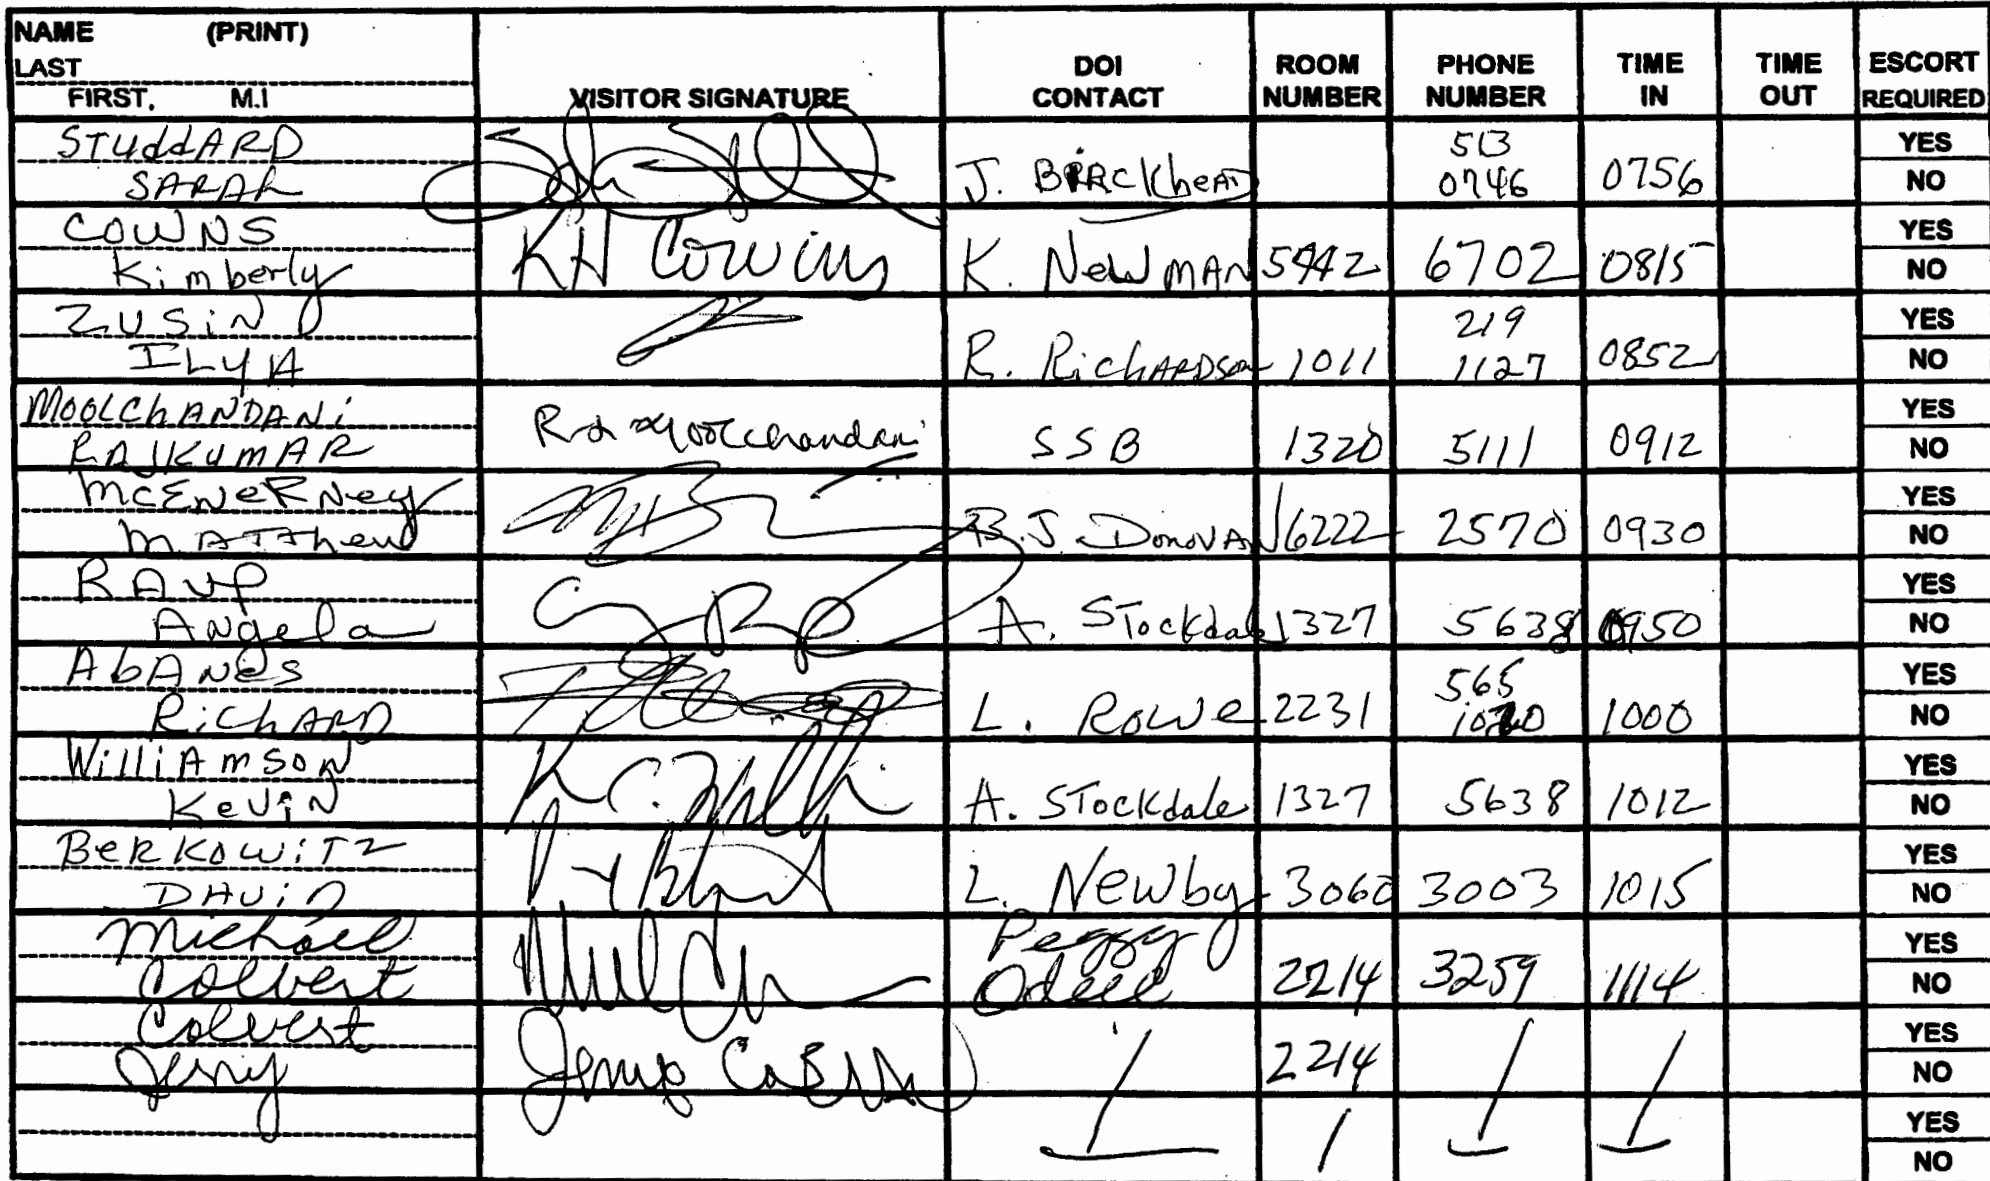 NAME (PRINT)
LAST
FIRST, M.I
VISITOR SIGNATURE
DOI CONTACT
ROOM NUMBER
PHONE NUMBER
TIME IN
TIME OUT
ESCORT REQUIRED
STUddARD
SARAh
J. BIRCKheAD
513
0746
0756
YES
NO
COWNS
Kimberly
KH Cowins
K. NewMAN
5442
6702
0815
YES
NO
ZUSiN
ILYA
R. RichARDSon
1011
219
1127
0852
YES
NO
MOOLChANDANi
RAJKUMAR
Moolchandani
SSB
1320
5111
0912
YES
NO
McENeRNey
MATThew
B.J. DonovAN
6222
2570
0930
YES
NO
RAUP
Angela
A. STockdale
1327
5638
0950
YES
NO
AbANes
RichARD
L. Rowe
2231
565
1000
YES
NO
WilliAmsoN
KeviN
K.C.
A. STockdale
1327
5638
1012
YES
NO
BeRKowiTz
DAViD
L. Newby
3060
3003
1015
YES
NO
Michael
Colbert
Peggy
Odell
2214
3259
1114
YES
NO
Colbert
Jeny
2214
YES
NO
YES
NO